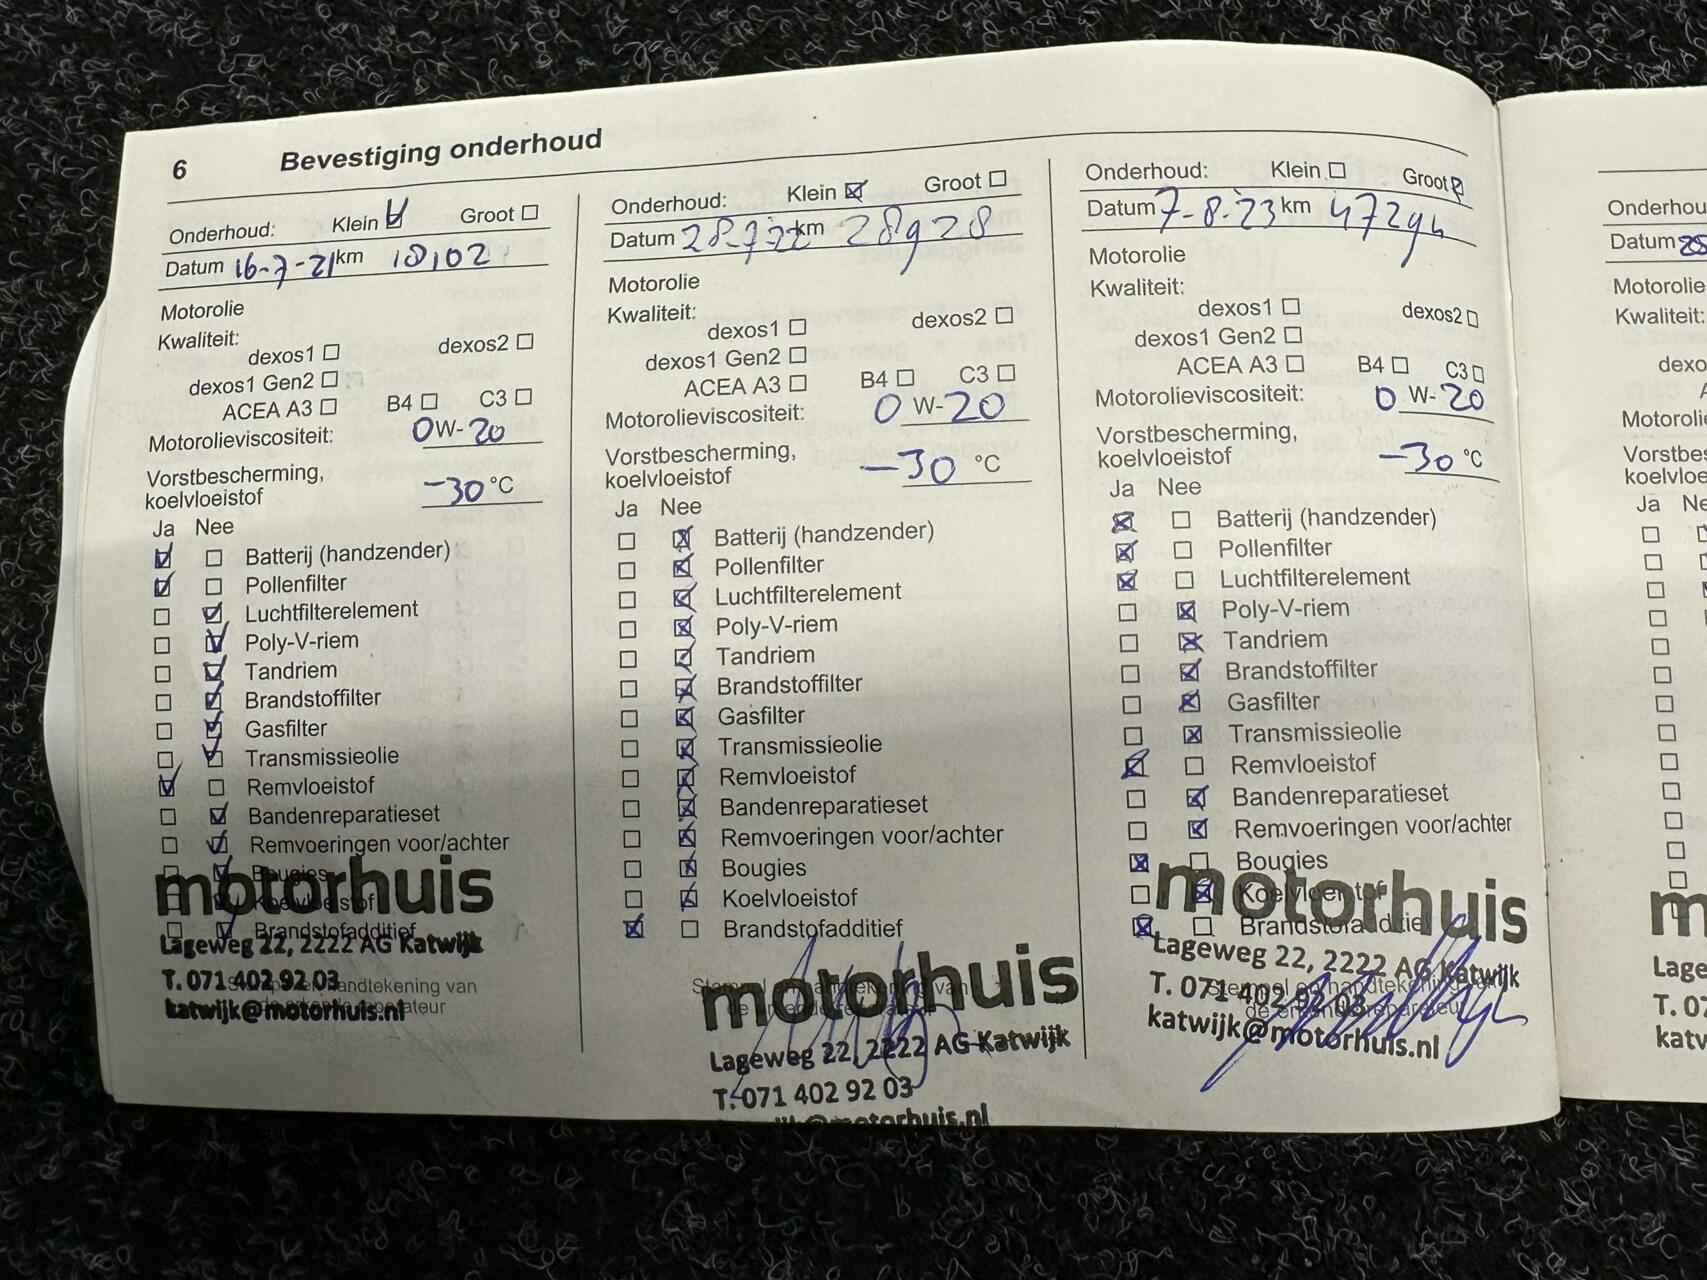 6 Bevestiging onderhoud
Onderhoud: Klein Groot
Datum 16-7-21 km 18,02
Motorolie
Kwaliteit:
dexos1 dexos2
dexos1 Gen2
ACEA A3 B4 C3
Motorolieviscositeit: 0W-20
Vorstbescherming,
koelvloeistof -30 °C
Ja Nee
Batterij (handzender)
Pollenfilter
Luchtfilterelement
Poly-V-riem
Tandriem
Brandstoffilter
Gasfilter
Transmissieolie
Remvloeistof
Bandenreparatieset
Remvoeringen voor/achter
Bougies
Koelvloeistof
Brandstofadditief
motorhuis
Lageweg 22, 2222 AG Katwijk
T. 071 402 92 03
katwijk@motorhuis.nl
Onderhoud: Klein Groot
Datum 28-7-22 km 28928
Motorolie
Kwaliteit:
dexos1 dexos2
dexos1 Gen2
ACEA A3 B4 C3
Motorolieviscositeit: 0 W-20
Vorstbescherming,
koelvloeistof -30 °C
Ja Nee
Batterij (handzender)
Pollenfilter
Luchtfilterelement
Poly-V-riem
Tandriem
Brandstoffilter
Gasfilter
Transmissieolie
Remvloeistof
Bandenreparatieset
Remvoeringen voor/achter
Bougies
Koelvloeistof
Brandstofadditief
Stempel en handtekening van
motorhuis
Lageweg 22, 2222 AG Katwijk
T. 071 402 92 03
katwijk@motorhuis.nl
Onderhoud: Klein Groot
Datum 7-8-23 km 47294
Motorolie
Kwaliteit:
dexos1 dexos2
dexos1 Gen2
ACEA A3 B4 C3
Motorolieviscositeit: 0 W-20
Vorstbescherming,
koelvloeistof -30 °C
Ja Nee
Batterij (handzender)
Pollenfilter
Luchtfilterelement
Poly-V-riem
Tandriem
Brandstoffilter
Gasfilter
Transmissieolie
Remvloeistof
Bandenreparatieset
Remvoeringen voor/achter
Bougies
Koelvloeistof
Brandstofadditief
motorhuis
Lageweg 22, 2222 AG Katwijk
T. 071 402 92 03
katwijk@motorhuis.nl
Onderhou
Datum
Motorolie
Kwaliteit:
dexo
Motorolie
Vorstbes
koelvloe
Ja Ne
m
Lage
T. 07
katw